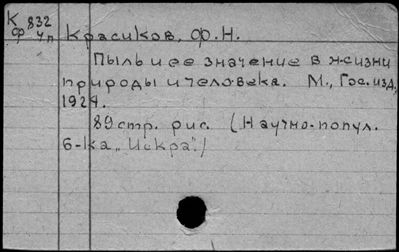 К 832
ф чп
Красиков, Ф.Н.
Пыль и ее значение в жизни
природы и человека. М., Гос. изд,
1924.
89 стр. рис. (Научно-попул.
б-ка „Искра".)